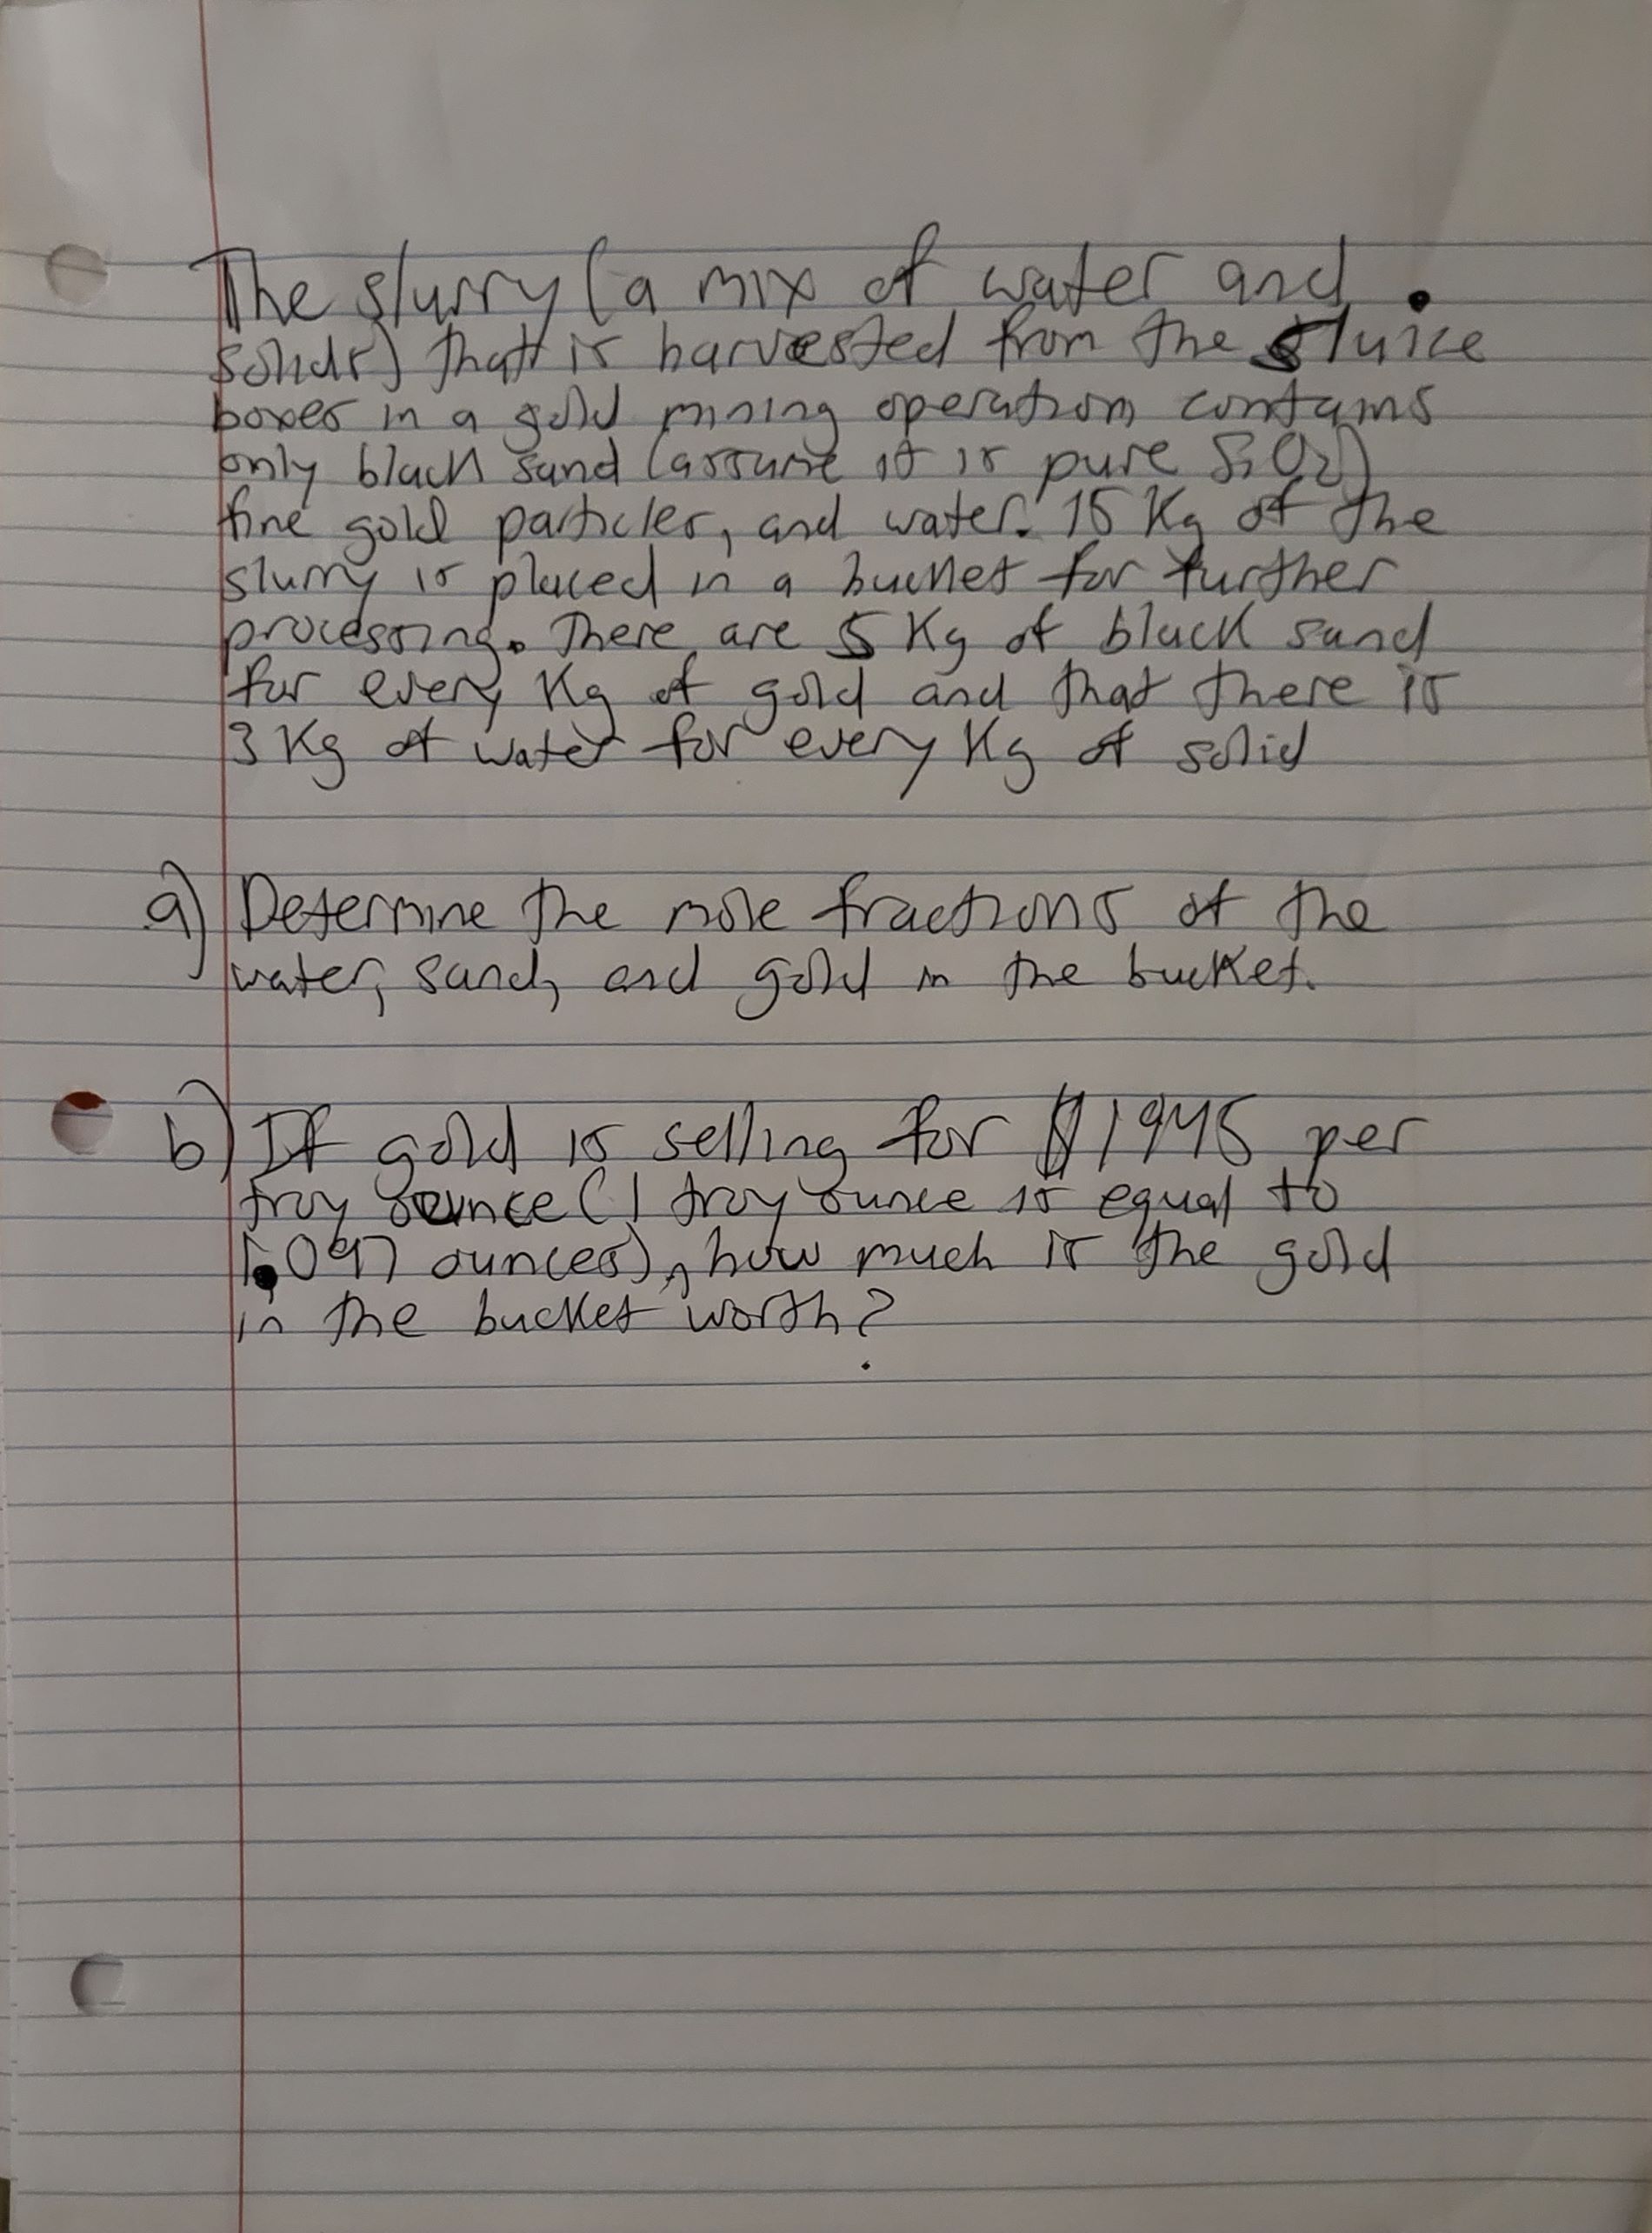 The slurry (a mix of water and
solids) that is harvested from the sluice
boxes in a gold mining operation contains
only black sand (assume it is pure SiO2)
fine gold particles, and water. 15 Kg of the
slurry is placed in a bucket for further
processing. There are 5 Kg of black sand
for every Kg of gold and that there is
3 Kg of water for every Kg of solid
a) Determine the mole fractions of the
water, sand, and gold in the bucket.
b) If gold is selling for $1945 per
troy ounce (1 troy ounce is equal to
1.097 ounces), how much is the gold
in the bucket worth?